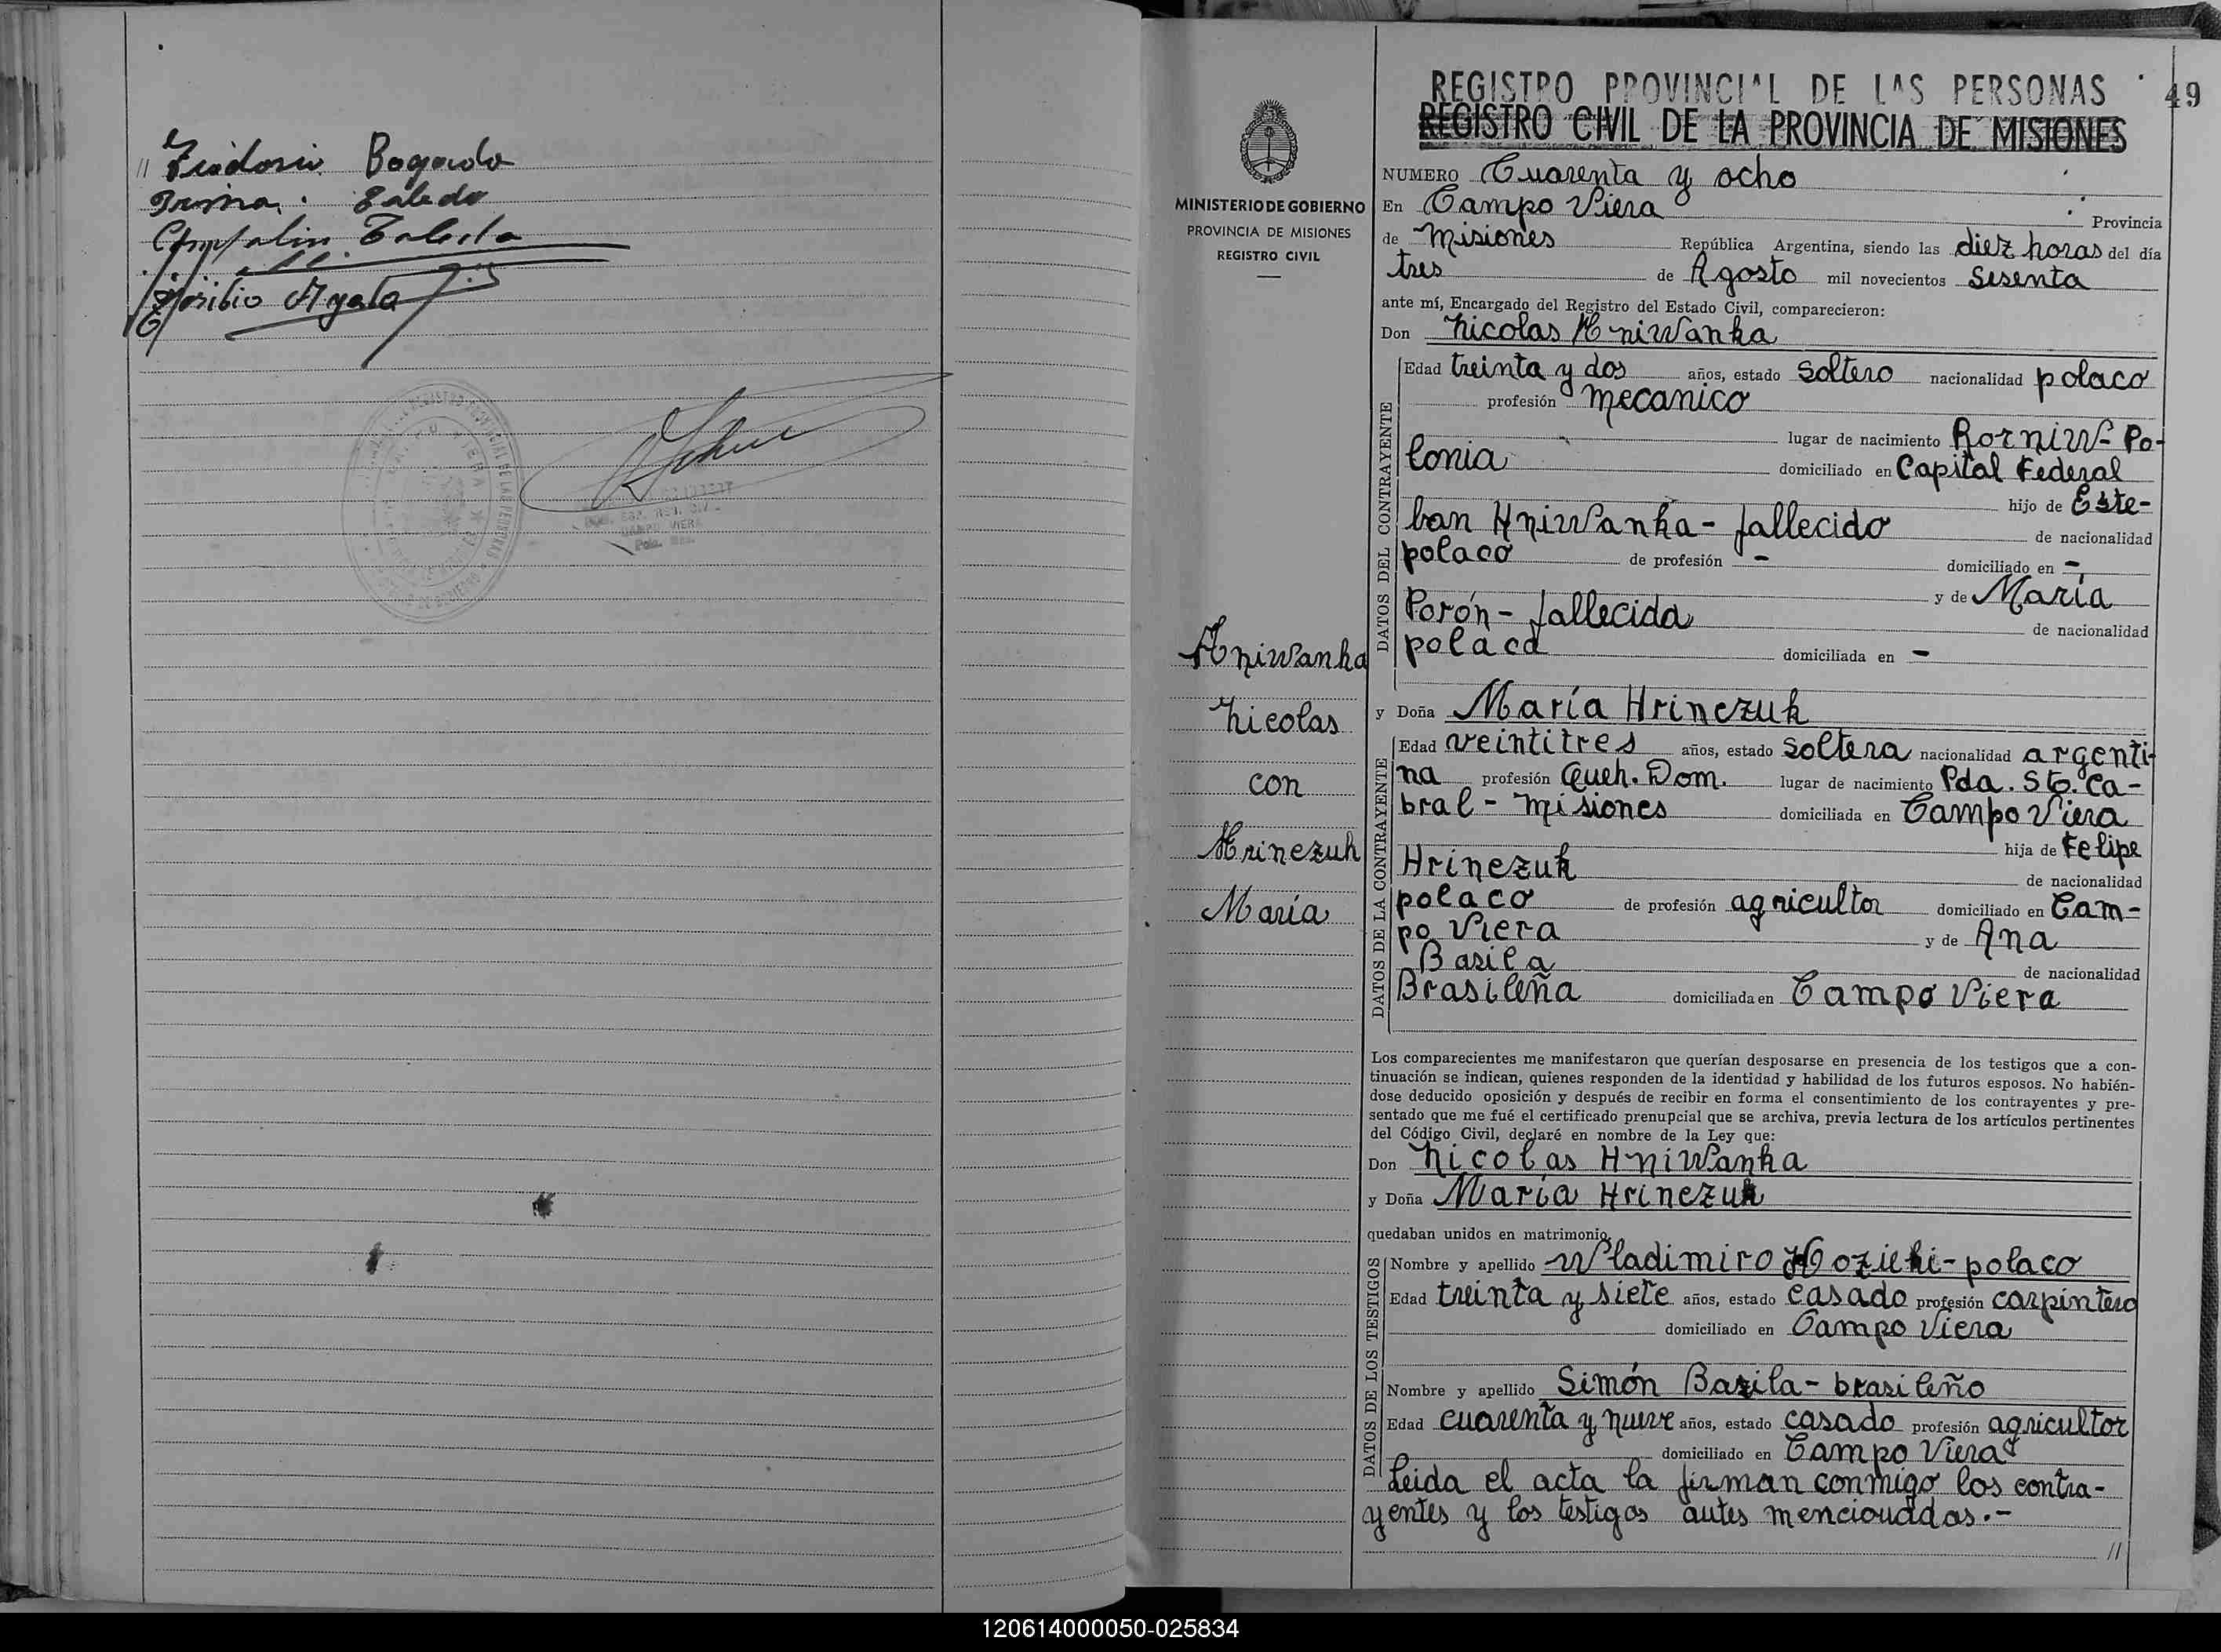 Bogado
Toledo
Toledo
Toribio Ayala
REGISTRO PROVINCIAL DE LAS PERSONAS
49
REGISTRO CIVIL DE LA PROVINCIA DE MISIONES
MINISTERIO DE GOBIERNO
PROVINCIA DE MISIONES
REGISTRO CIVIL
Hniwanka
Nicolas
con
Hrinczuk
María
NUMERO Cuarenta y ocho
En Campo Viera Provincia
de Misiones República Argentina, siendo las diez horas del día
tres de Agosto mil novecientos sesenta
ante mí, Encargado del Registro del Estado Civil, comparecieron:
Don Nicolas Hniwanka
DATOS DEL CONTRAYENTE
Edad treinta y dos años, estado soltero nacionalidad polaco
profesión mecanico
lugar de nacimiento Rorniw - Po-
lonia domiciliado en Capital Federal
hijo de Este-
ban Hniwanka - fallecido de nacionalidad
polaco de profesión - domiciliado en -
y de María
Porón - fallecida de nacionalidad
polaca domiciliada en -
y Doña María Hrinczuk
DATOS DE LA CONTRAYENTE
Edad veintitres años, estado soltera nacionalidad argenti-
na profesión Queh. Dom. lugar de nacimiento Pda. Sto. Ca-
bral - Misiones domiciliada en Campo Viera
hija de Felipe
Hrinczuk de nacionalidad
polaco de profesión agricultor domiciliado en Cam-
po Viera y de Ana
Basila de nacionalidad
Brasileña domiciliada en Campo Viera
Los comparecientes me manifestaron que querían desposarse en presencia de los testigos que a con-
tinuación se indican, quienes responden de la identidad y habilidad de los futuros esposos. No habién-
dose deducido oposición y después de recibir en forma el consentimiento de los contrayentes y pre-
sentado que me fué el certificado prenupcial que se archiva, previa lectura de los artículos pertinentes
del Código Civil, declaré en nombre de la Ley que:
Don Nicolas Hniwanka
y Doña María Hrinczuk
quedaban unidos en matrimonio.
DATOS DE LOS TESTIGOS
Nombre y apellido Wladimiro Kozicki - polaco
Edad treinta y siete años, estado casado profesión carpintero
domiciliado en Campo Viera
Nombre y apellido Simón Bazila - brasileño
Edad cuarenta y nueve años, estado casado profesión agricultor
domiciliado en Campo Viera
Leida el acta la firman conmigo los contra-
yentes y los testigos antes mencionados.-
//
120614000050-025834